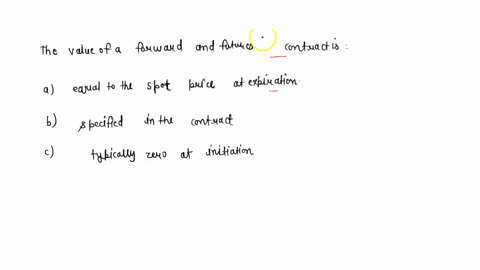 The value of a forward and futures contract is :
a) equal to the spot price at expiration.
b) specified in the contract
c) typically zero at initiation